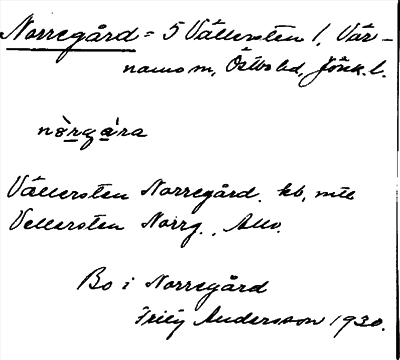 Norregård = 5 Vällersten 1, Vär-
namo m, Östbo hd, Jönk. l.
nòrgàra
Vällersten Norregård. kb, mtl
Vellersten Norrg.,
Bo i Norregård
Andersson 1930.